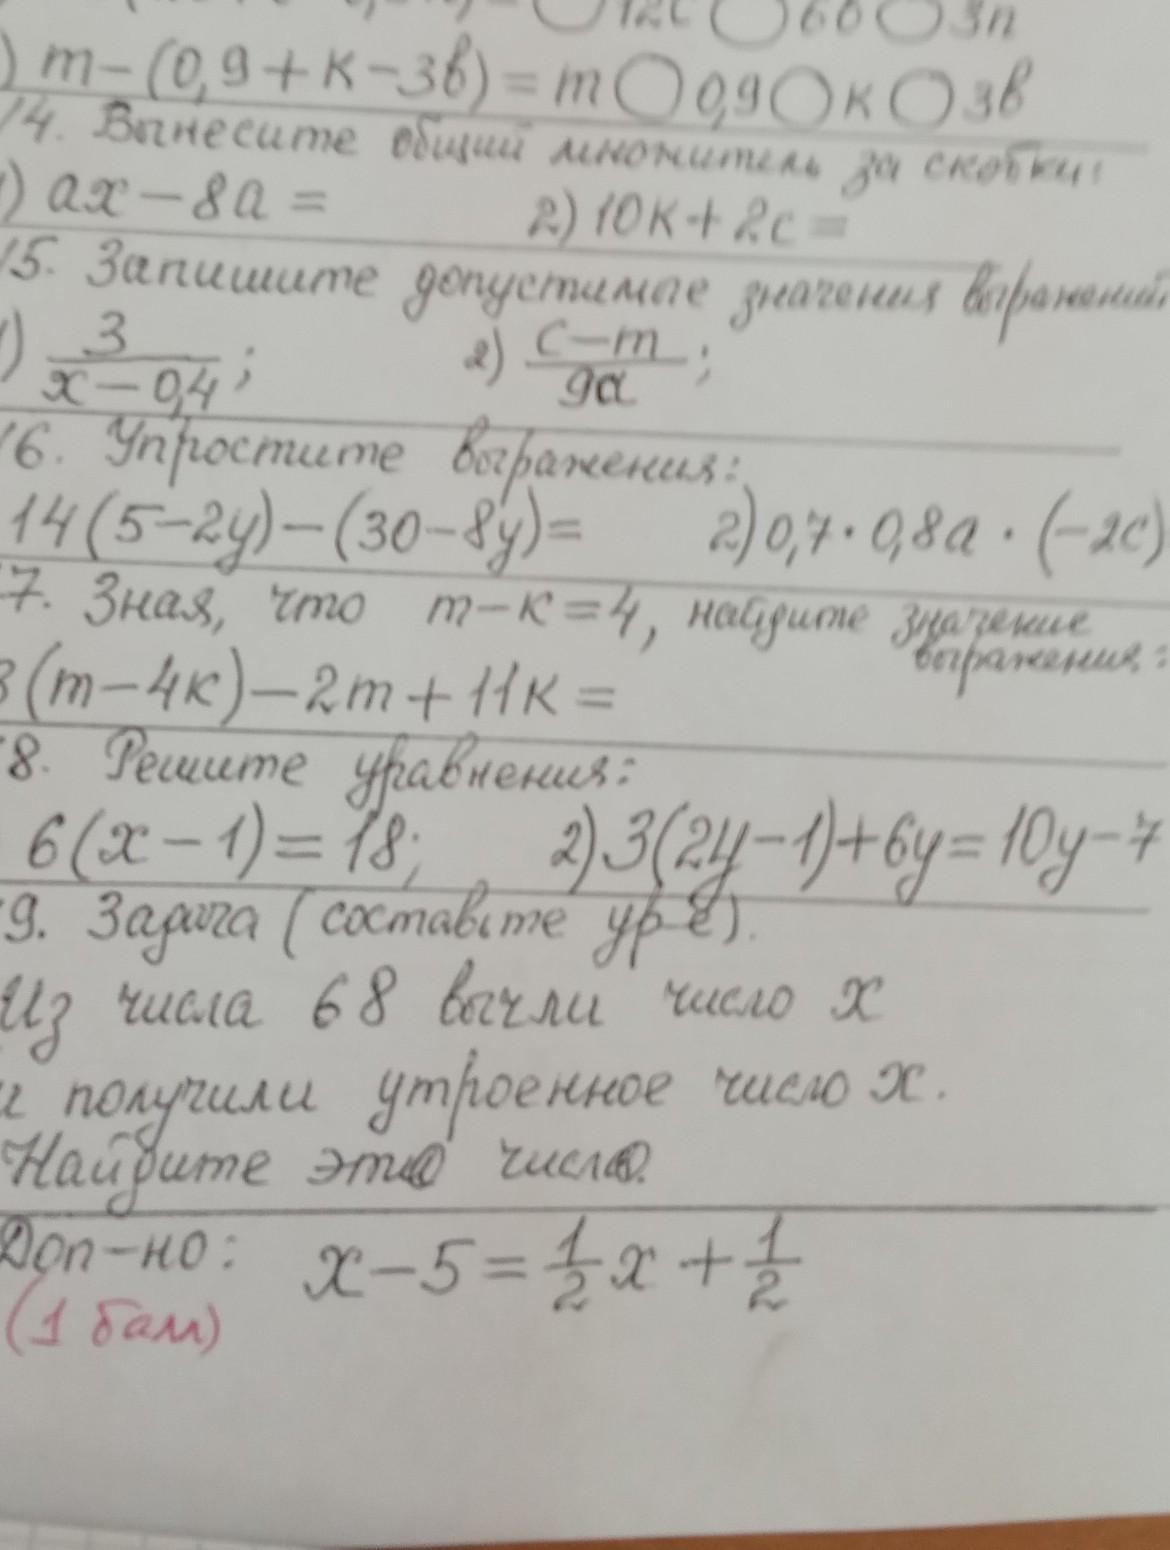 12c ◯ 6b ◯ 3n
) m-(0,9+к-3в)=m◯0,9◯к◯3в
/4. Вынесите общий множитель за скобки:
) ax-8a=   2) 10к+2c=
/5. Запишите допустимые значения выражений
) 3/(x-0,4);   2) (c-m)/9a;
/6. Упростите выражения:
14(5-2y)-(30-8y)=   2) 0,7·0,8a·(-2c)
7. Зная, что m-к=4, найдите значение
выражения:
3(m-4к)-2m+11к=
8. Решите уравнения:
6(x-1)=18;   2) 3(2y-1)+6y=10y-7
9. Задача (составьте ур-е).
Из числа 68 вычли число x
и получили утроенное число x.
Найдите это число.
Доп-но: x-5=1/2x+1/2
(1 балл)